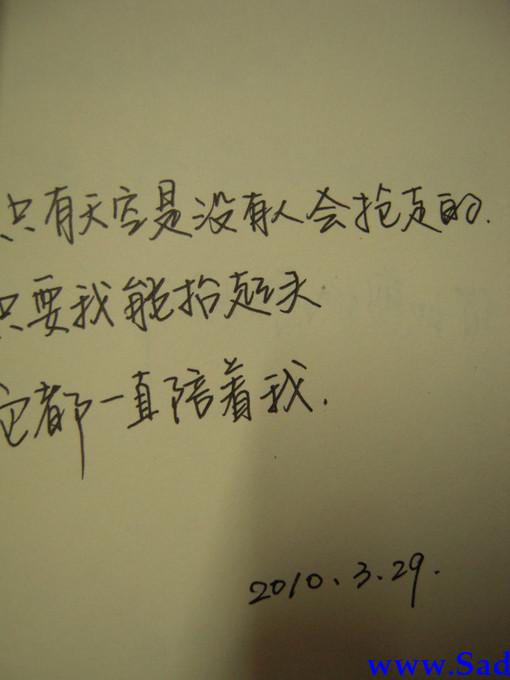 只有天空是没有人会抢走的.
只要我能抬起头
它都一直陪着我.
2010.3.29.
www.Sad